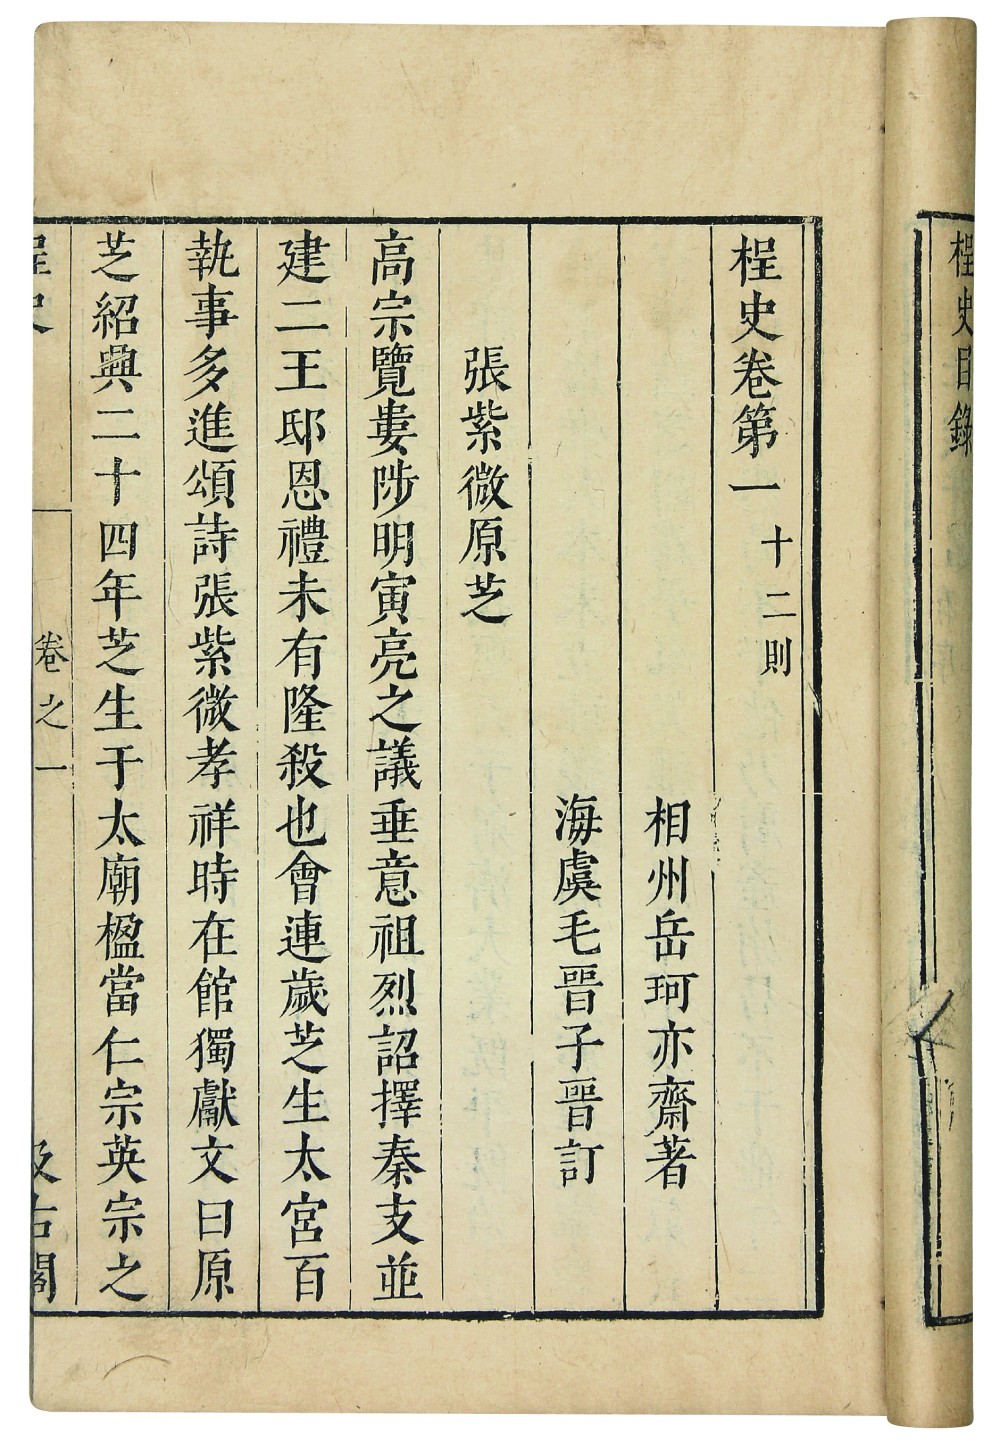 桯史目錄
桯史卷第一 十二則
相州岳珂亦齋著
海虞毛晉子晉訂
張紫微原芝
高宗覽婁陟明寅亮之議垂意祖烈詔擇秦支並
建二王邸恩禮未有隆殺也會連歲芝生太宮百
執事多進頌詩張紫微孝祥時在館獨獻文曰原
芝紹興二十四年芝生于太廟楹當仁宗英宗之
桯史 卷之一 汲古閣